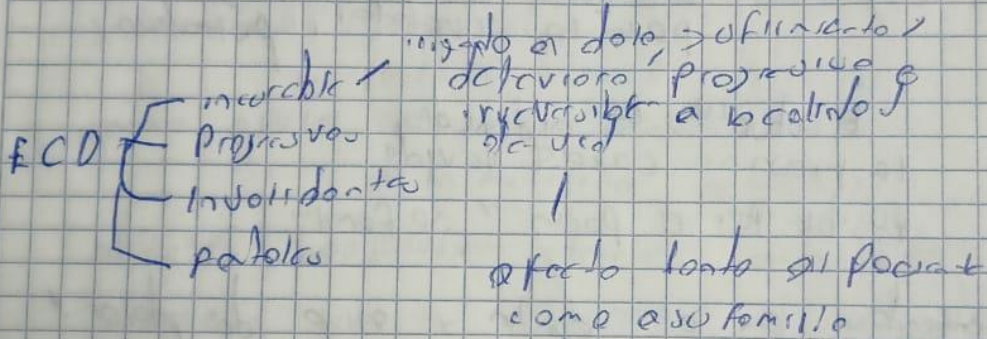 ECD
incurable
Progresivas
Involidantes
Patolcs
dolo, → sufrimiento y
deterioro, progresivo e
irreversible a la calidad
de vid
afecto tanto al pacient
como a su familia